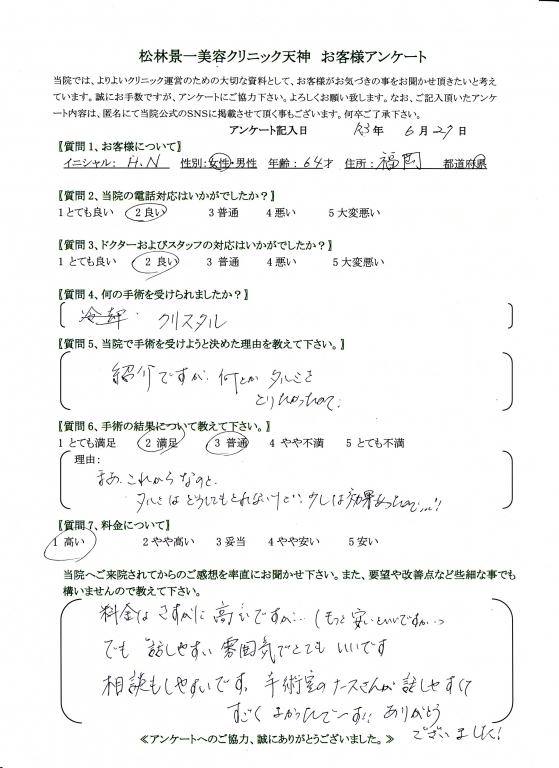 松林景一美容クリニック天神　お客様アンケート
当院では、よりよいクリニック運営のための大切な資料として、お客様がお気づきの事をお聞かせ頂きたいと考え
ています。誠にお手数ですが、アンケートにご協力下さい。よろしくお願い致します。なお、ご記入頂いたアンケ
ート内容は、匿名にて当院公式のSNSに掲載させて頂く事もございます。何卒ご了承下さい。
アンケート記入日　R3年　6月27日
〖質問1、お客様について〗
イニシャル： H.N　性別：女性・男性　年齢：64才　住所：福岡　都道府県
〖質問2、当院の電話対応はいかがでしたか？〗
1 とても良い　2 良い　3 普通　4 悪い　5 大変悪い
〖質問3、ドクターおよびスタッフの対応はいかがでしたか？〗
1 とても良い　2 良い　3 普通　4 悪い　5 大変悪い
〖質問4、何の手術を受けられましたか？〗
クリスタル
〖質問5、当院で手術を受けようと決めた理由を教えて下さい。〗
紹介ですが、何とか タルミを
とりたかったので、
〖質問6、手術の結果について教えて下さい。〗
1 とても満足　2 満足　3 普通　4 やや不満　5 とても不満
理由：
まあ、これからなのと、
タルミはどうしてもとれないけど、少しは効果あったので…!!
〖質問7、料金について〗
1 高い　2 やや高い　3 妥当　4 やや安い　5 安い
当院へご来院されてからのご感想を率直にお聞かせ下さい。また、要望や改善点など些細な事でも
構いませんので教えて下さい。
料金は さすがに 高いですが… (もっと 安いといいですが…)
でも 話しやすい 雰囲気で とても いいです
相談もしやすいです。手術室のナースさんが 話しやすくて
すごく よかったでーす!! ありがとう
ございました!
≪アンケートへのご協力、誠にありがとうございました。≫